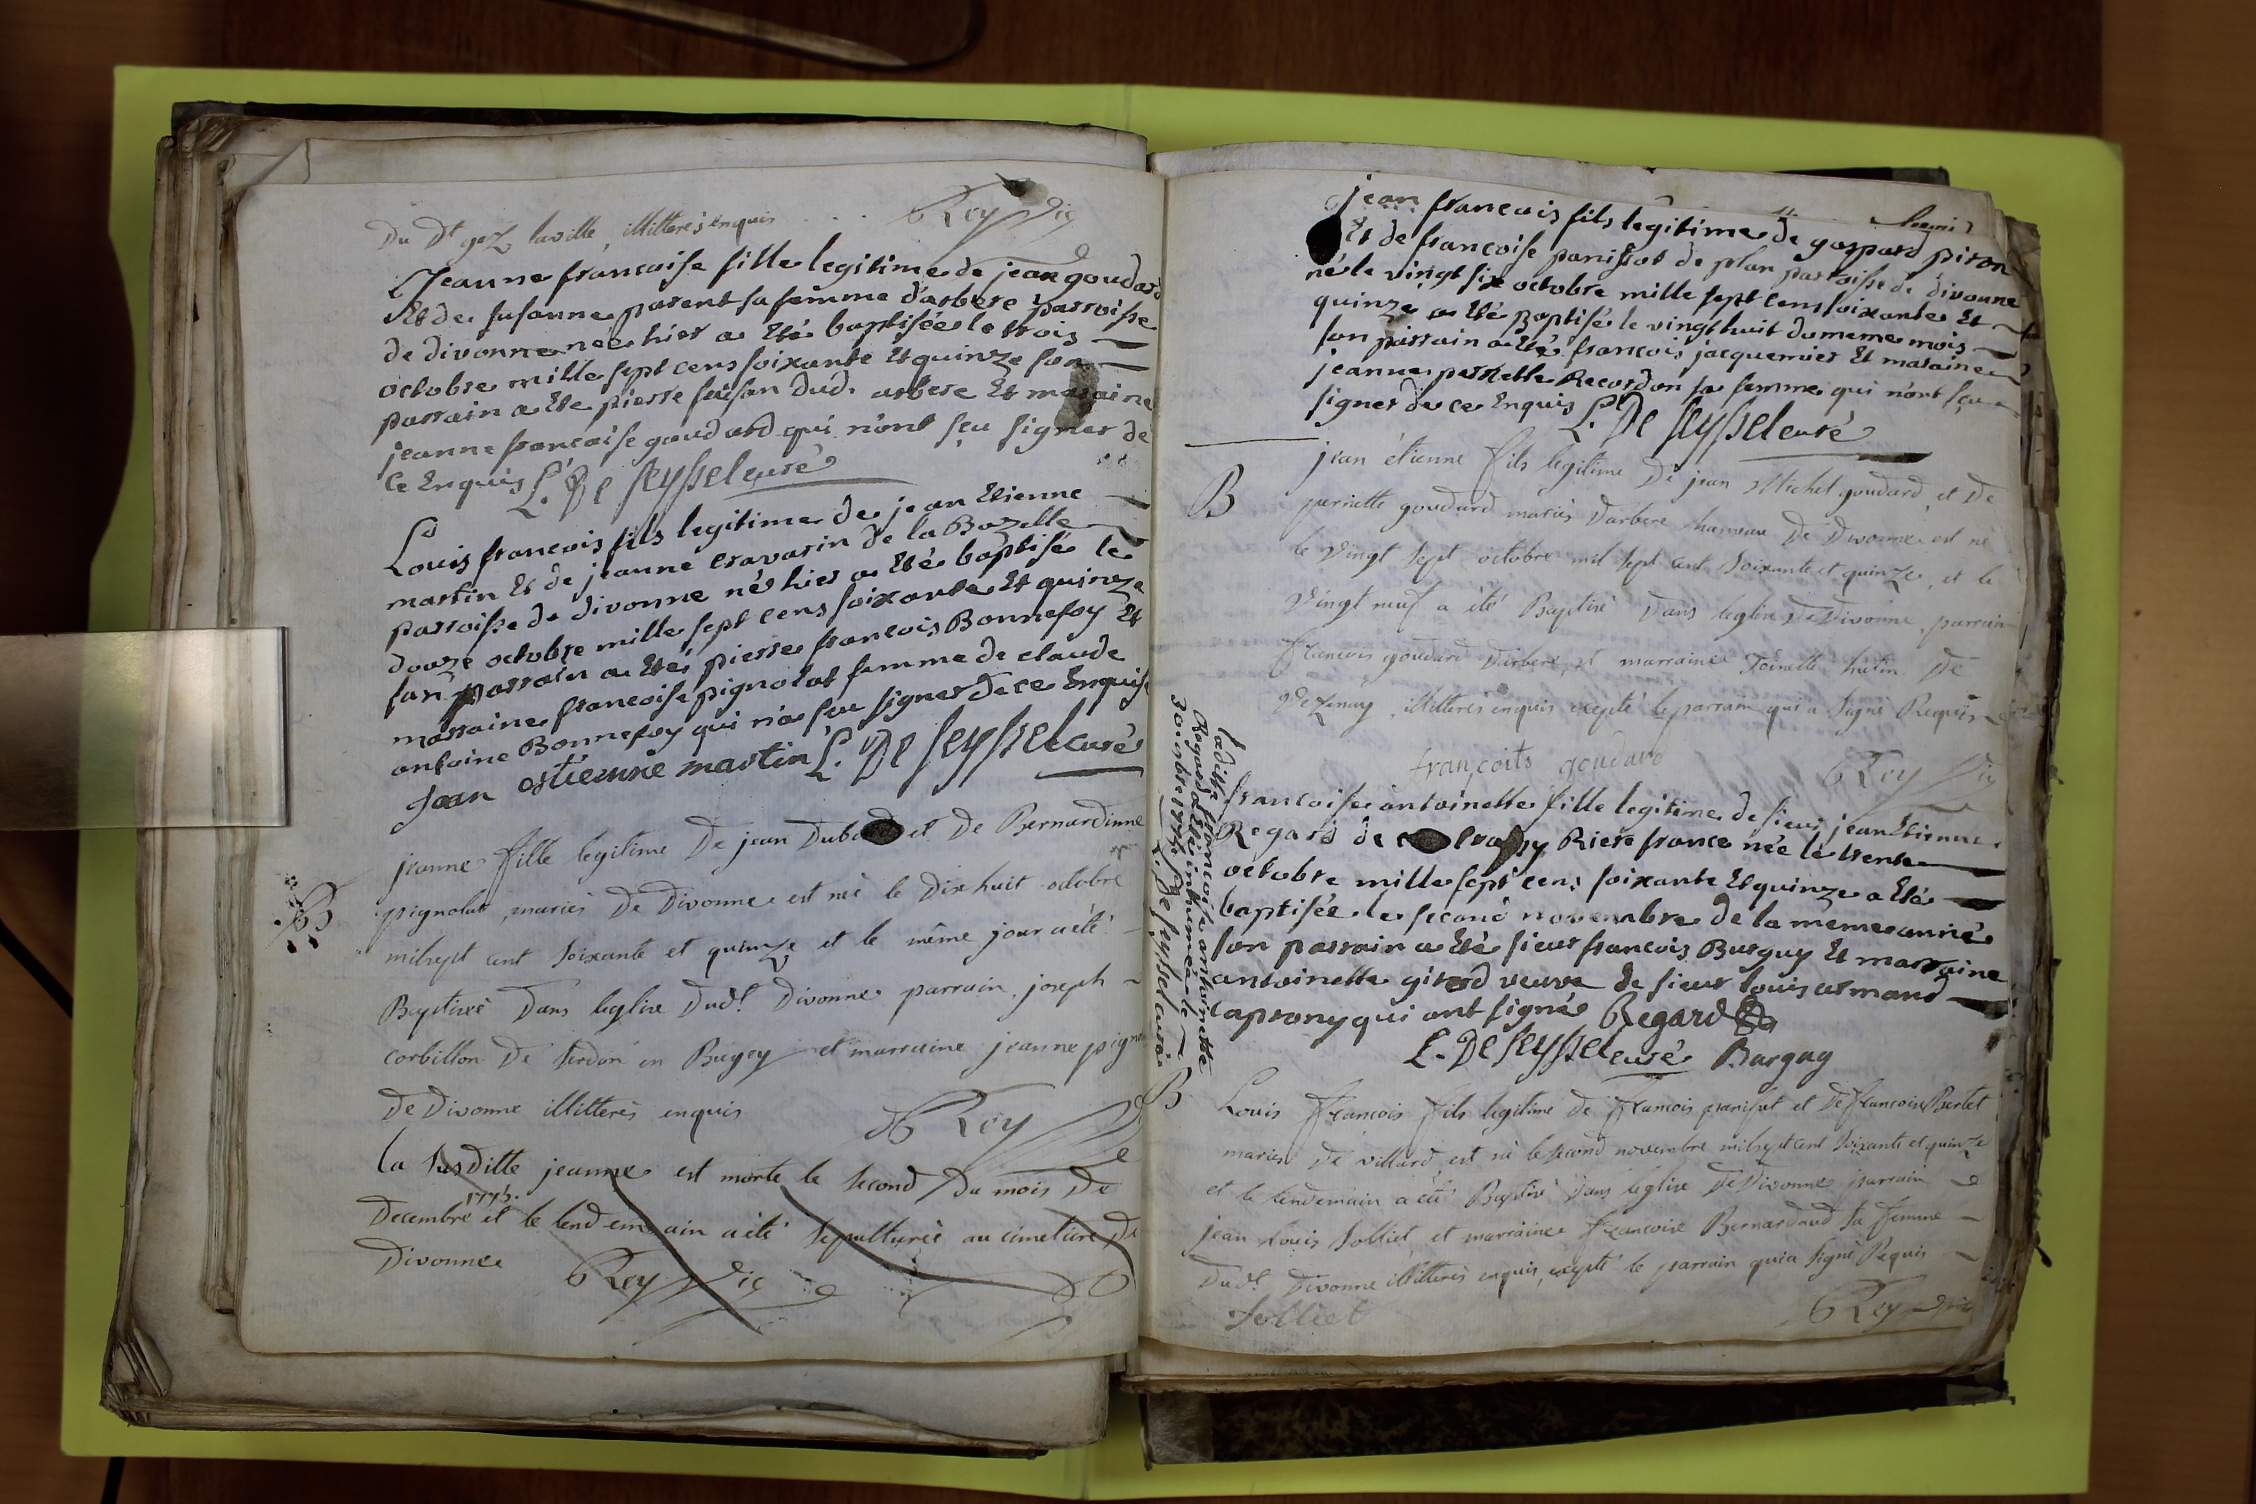 Du Dt gex laville, illitterés enquis . . . Rey Vic
Jeanne francoise fille legitime de jean goudard
Et de susanne parent sa femme d'arbere parroisse
de divonne née hier a Eté baptisée le trois
octobre mille sept cens soixante Et quinze son
parrain a Ete pierre faisan dud. arbere Et maraine
jeanne francoise goudard qui n'ont sçu signer de
ce Enquis L. De Seyssel curé
Louis francois fils legitime de jean Etienne
martin Et de jeanne Cravarin de la Bazelle
parroisse de divonne né hier a Eté baptisé le
douze octobre mille sept cens soixante Et quinze
son parrain a Eté pierre francois Bonnefoy Et
marraine francoise pignolat femme de claude
antoine Bonnefoy qui n'a sçu signer de ce Enquise
Jean estienne martin L. De Seyssel curé
B
jeanne fille legitime De jean et De Bernardinne
pignolat mariés De Divonne est née le Dix huit octobre
mil sept cent soixante et quinze et le même jour a été
Baptisée Dans leglise Dudt Divonne parrain joseph
corbillon De Serdon en Bugey et marraine jeanne
De Divonne illitterés enquis Rey
La susditte jeanne est morte le second Du mois De
Decembre 1775. et le lendemain a été sepulturée au cimetiere De
Divonne Rey Vic
jean francois fils legitime de gaspard piron
Et de francoise panissot de plan parroisse de divonne
né le vingt six octobre mille sept cens soixante Et
quinze a Eté Baptisé le vingt huit du meme mois
son parrain a Eté francois jacquemier Et maraine
jeanne pernette Recordon sa femme qui n'ont sçu
signer de ce Enquis L. De Seyssel curé
B
jean étienne fils legitime De jean Michel goudard et De
pernette goudard mariés Darbere hameau De Divonne est né
le vingt sept octobre mil sept cent soixante et quinze, et le
vingt neuf a été Baptisé Dans leglise De Divonne, parrain
francois goudard Darbere, et marraine hutin De
Vezenay, illitterés enquis excepté le parrain qui a signé Requis
françoits goudard Rey Vic
francoise antoinette fille legitime de sieur jean Etienne
Regard de Riere france née le trente
octobre mille sept cens soixante Et quinze a Eté
baptisée le second novembre de la meme année
son parrain a Eté sieur francois Burguy Et marraine
antoinette girard veuve de sieur louis armand
caprony qui ont signé Regard
L. De Seyssel curé Burguy
ladite francoise antoinette
Regard a Eté inhumée le
L. De Seyssel curé
B
Louis François fils legitime de François panissot et De Francoise Bertet
mariés De villard, est né le second novembre mil sept cent soixante et quinze
et le lendemain a été Baptisé Dans leglise De Divonne parrain
jean Louis Jolliet, et marraine Francoise Bernardaud sa femme
Dudt Divonne illitterés enquis, excepté le parrain qui a signé Requis
Jolliet Rey Vic